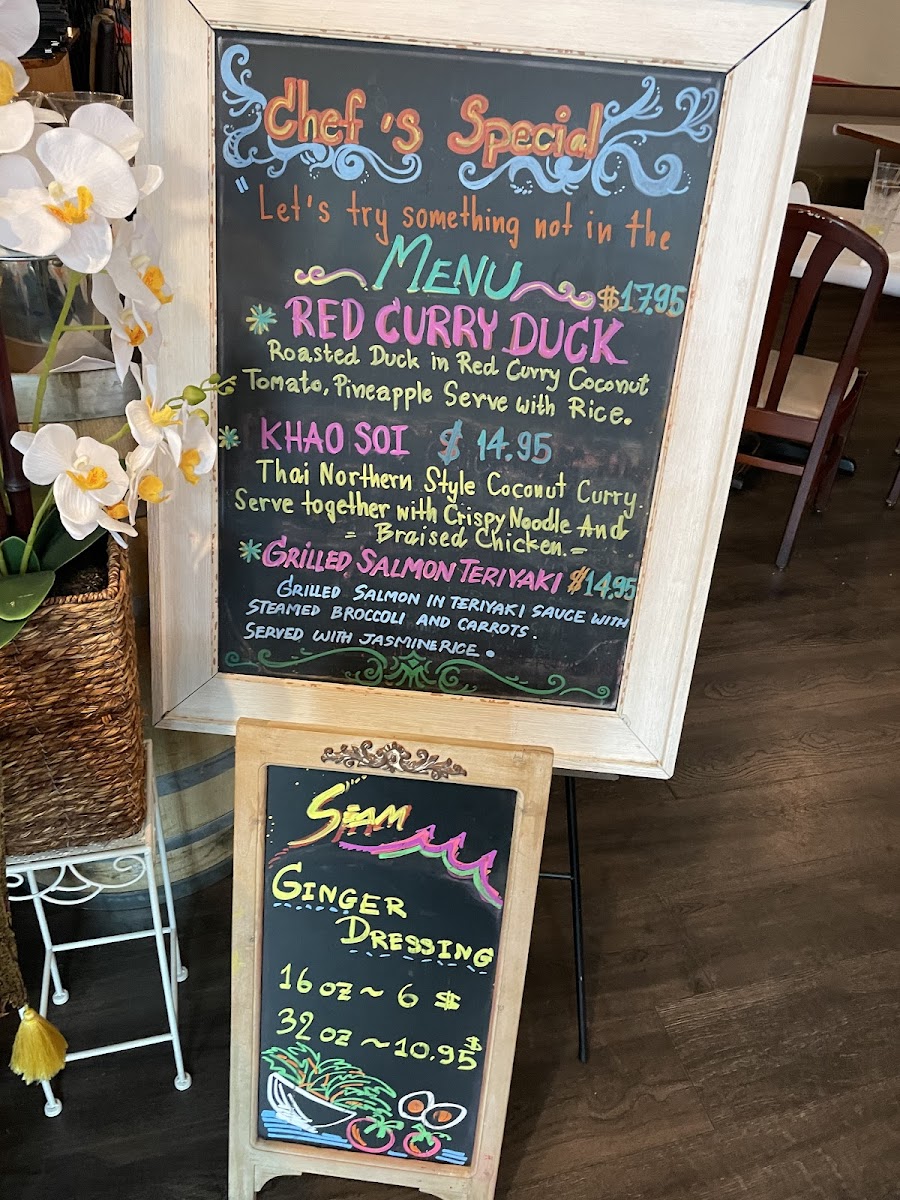 Chef's Special
" Let's try something not in the
MENU
$17.95
RED CURRY DUCK
Roasted Duck in Red Curry Coconut
Tomato, Pineapple Serve with Rice.
KHAO SOI $ 14.95
Thai Northern Style Coconut Curry.
Serve together with Crispy Noodle And
= Braised Chicken. =
GRILLED SALMON TERIYAKI $14.95
GRILLED SALMON IN TERIYAKI SAUCE WITH
STEAMED BROCCOLI AND CARROTS.
SERVED WITH JASMINE RICE.
SIAM
GINGER
DRESSING
16 oz ~ 6 $
32 oz ~ 10.95 $